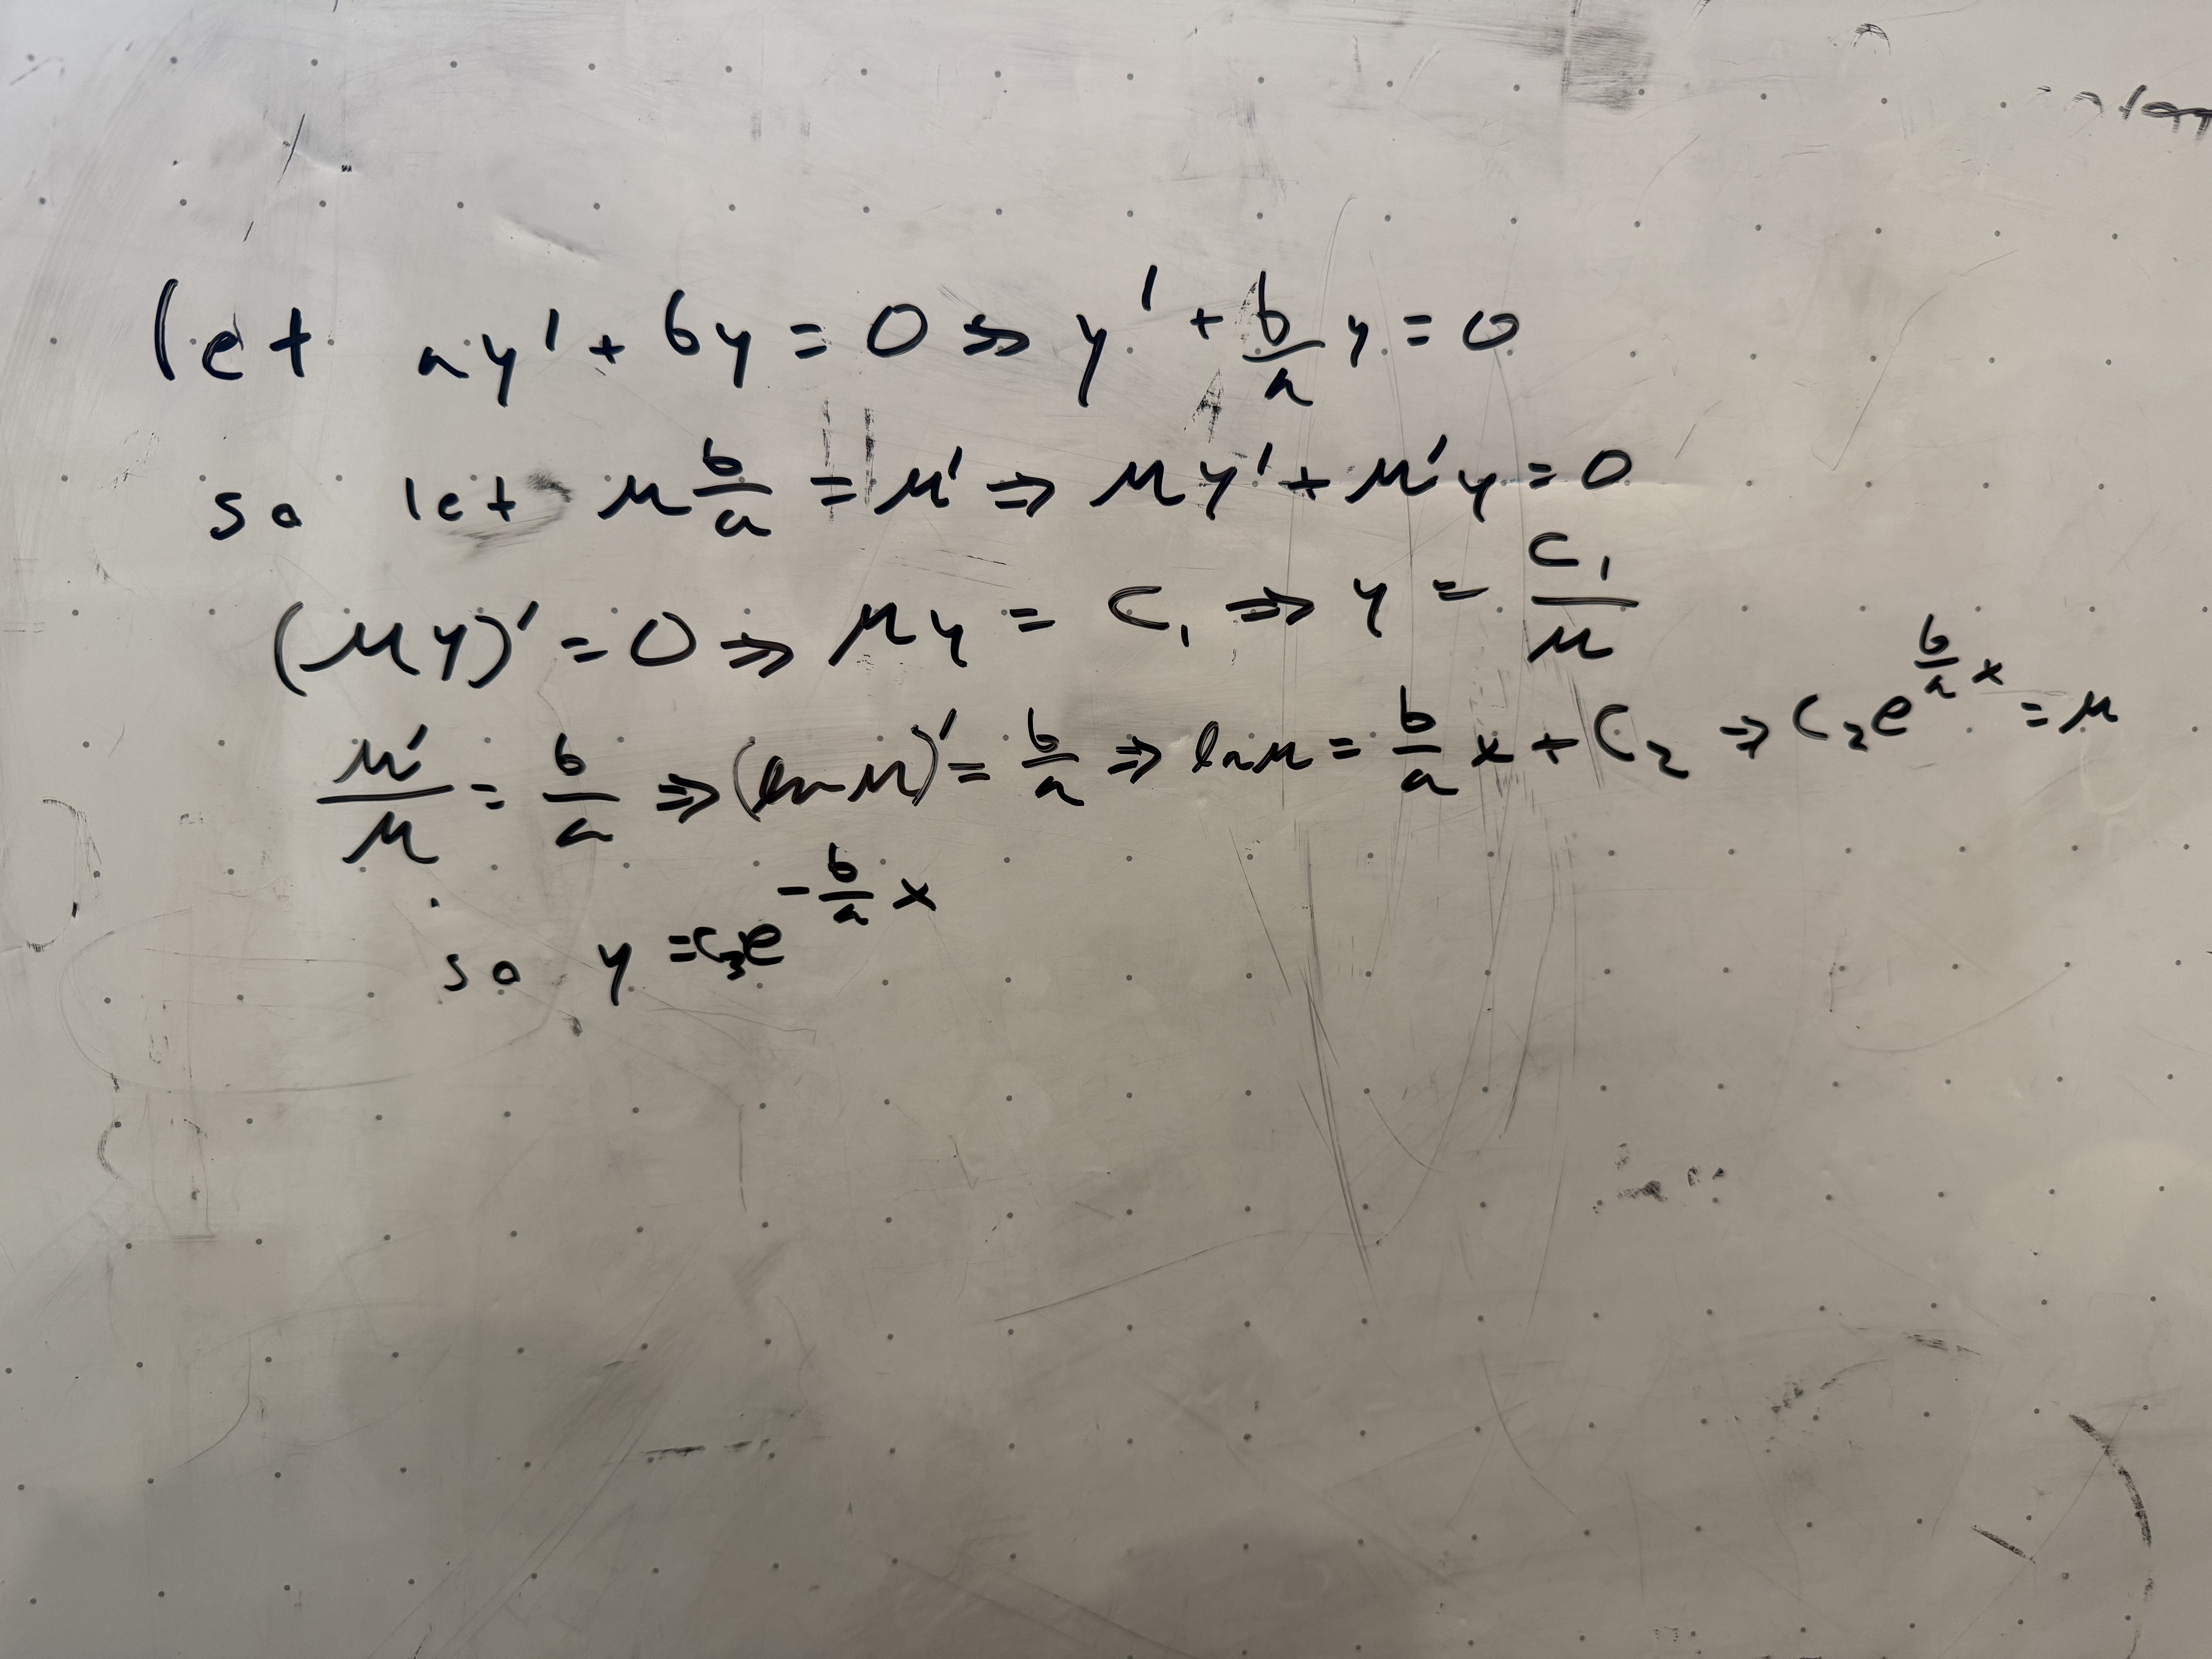 let ay' + by = 0 ⇒ y' + b/a y = 0
so let μ b/a = μ' ⇒ μy' + μ'y = 0
(μy)' = 0 ⇒ μy = C₁ ⇒ y = C₁/μ
μ'/μ = b/a ⇒ (ln μ)' = b/a ⇒ ln μ = b/a x + C₂ ⇒ C₂e^(b/a x) = μ
so y = C₃e^(-b/a x)